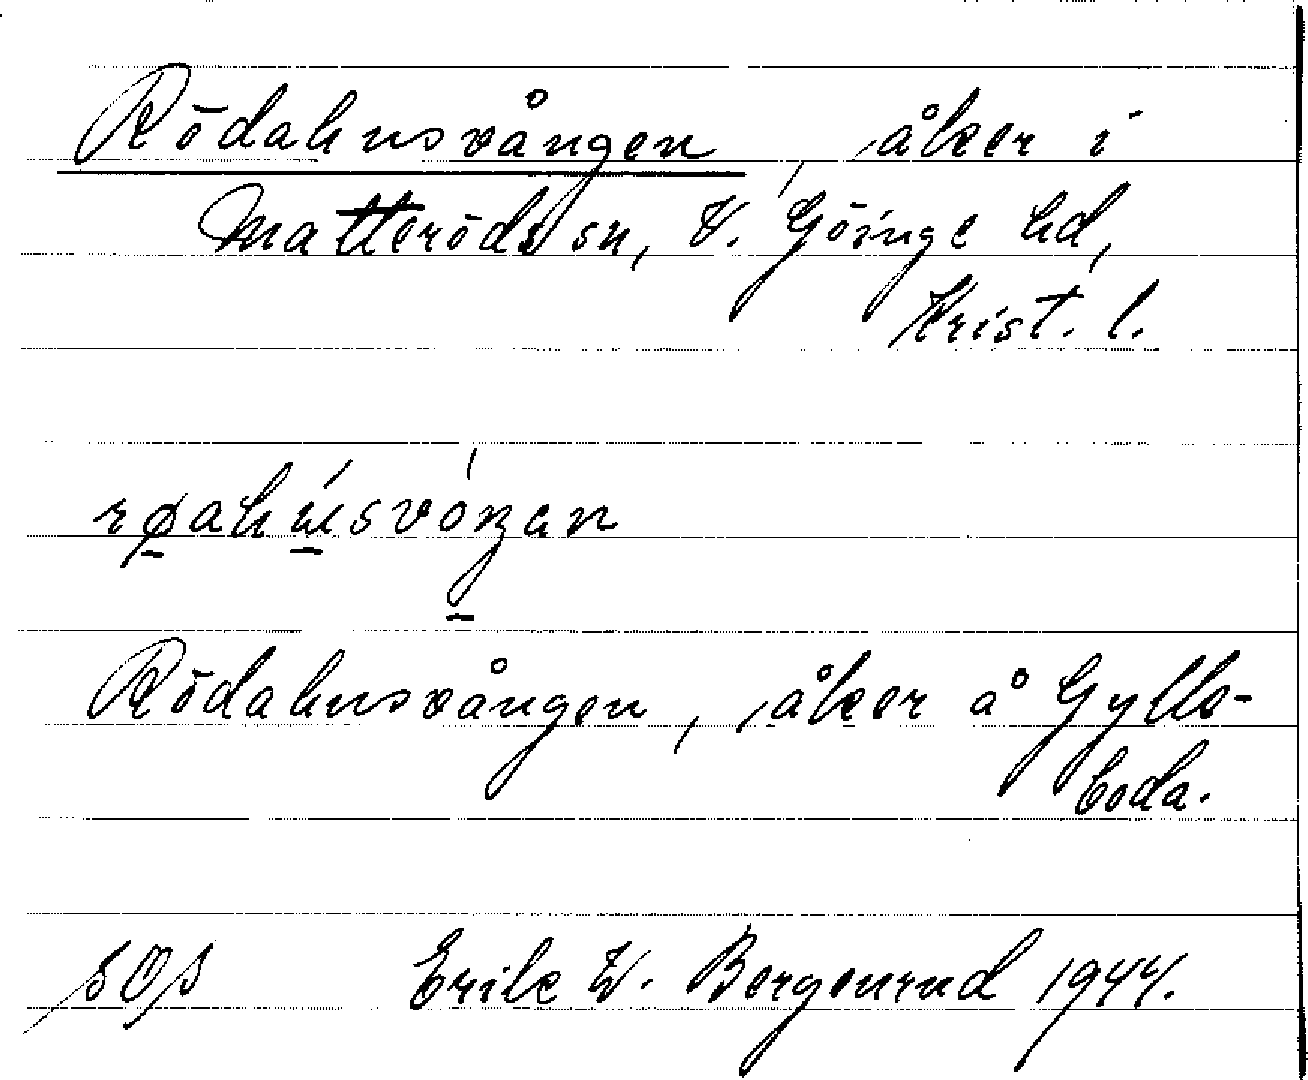 Rödahusvången, åker i
Matteröds sn, V. Göinge hd,
Krist. l.
røahúsvóŋan
Rödahusvången, åker å Gylls-
boda.
SOS Erik W. Bergenrud 1944.